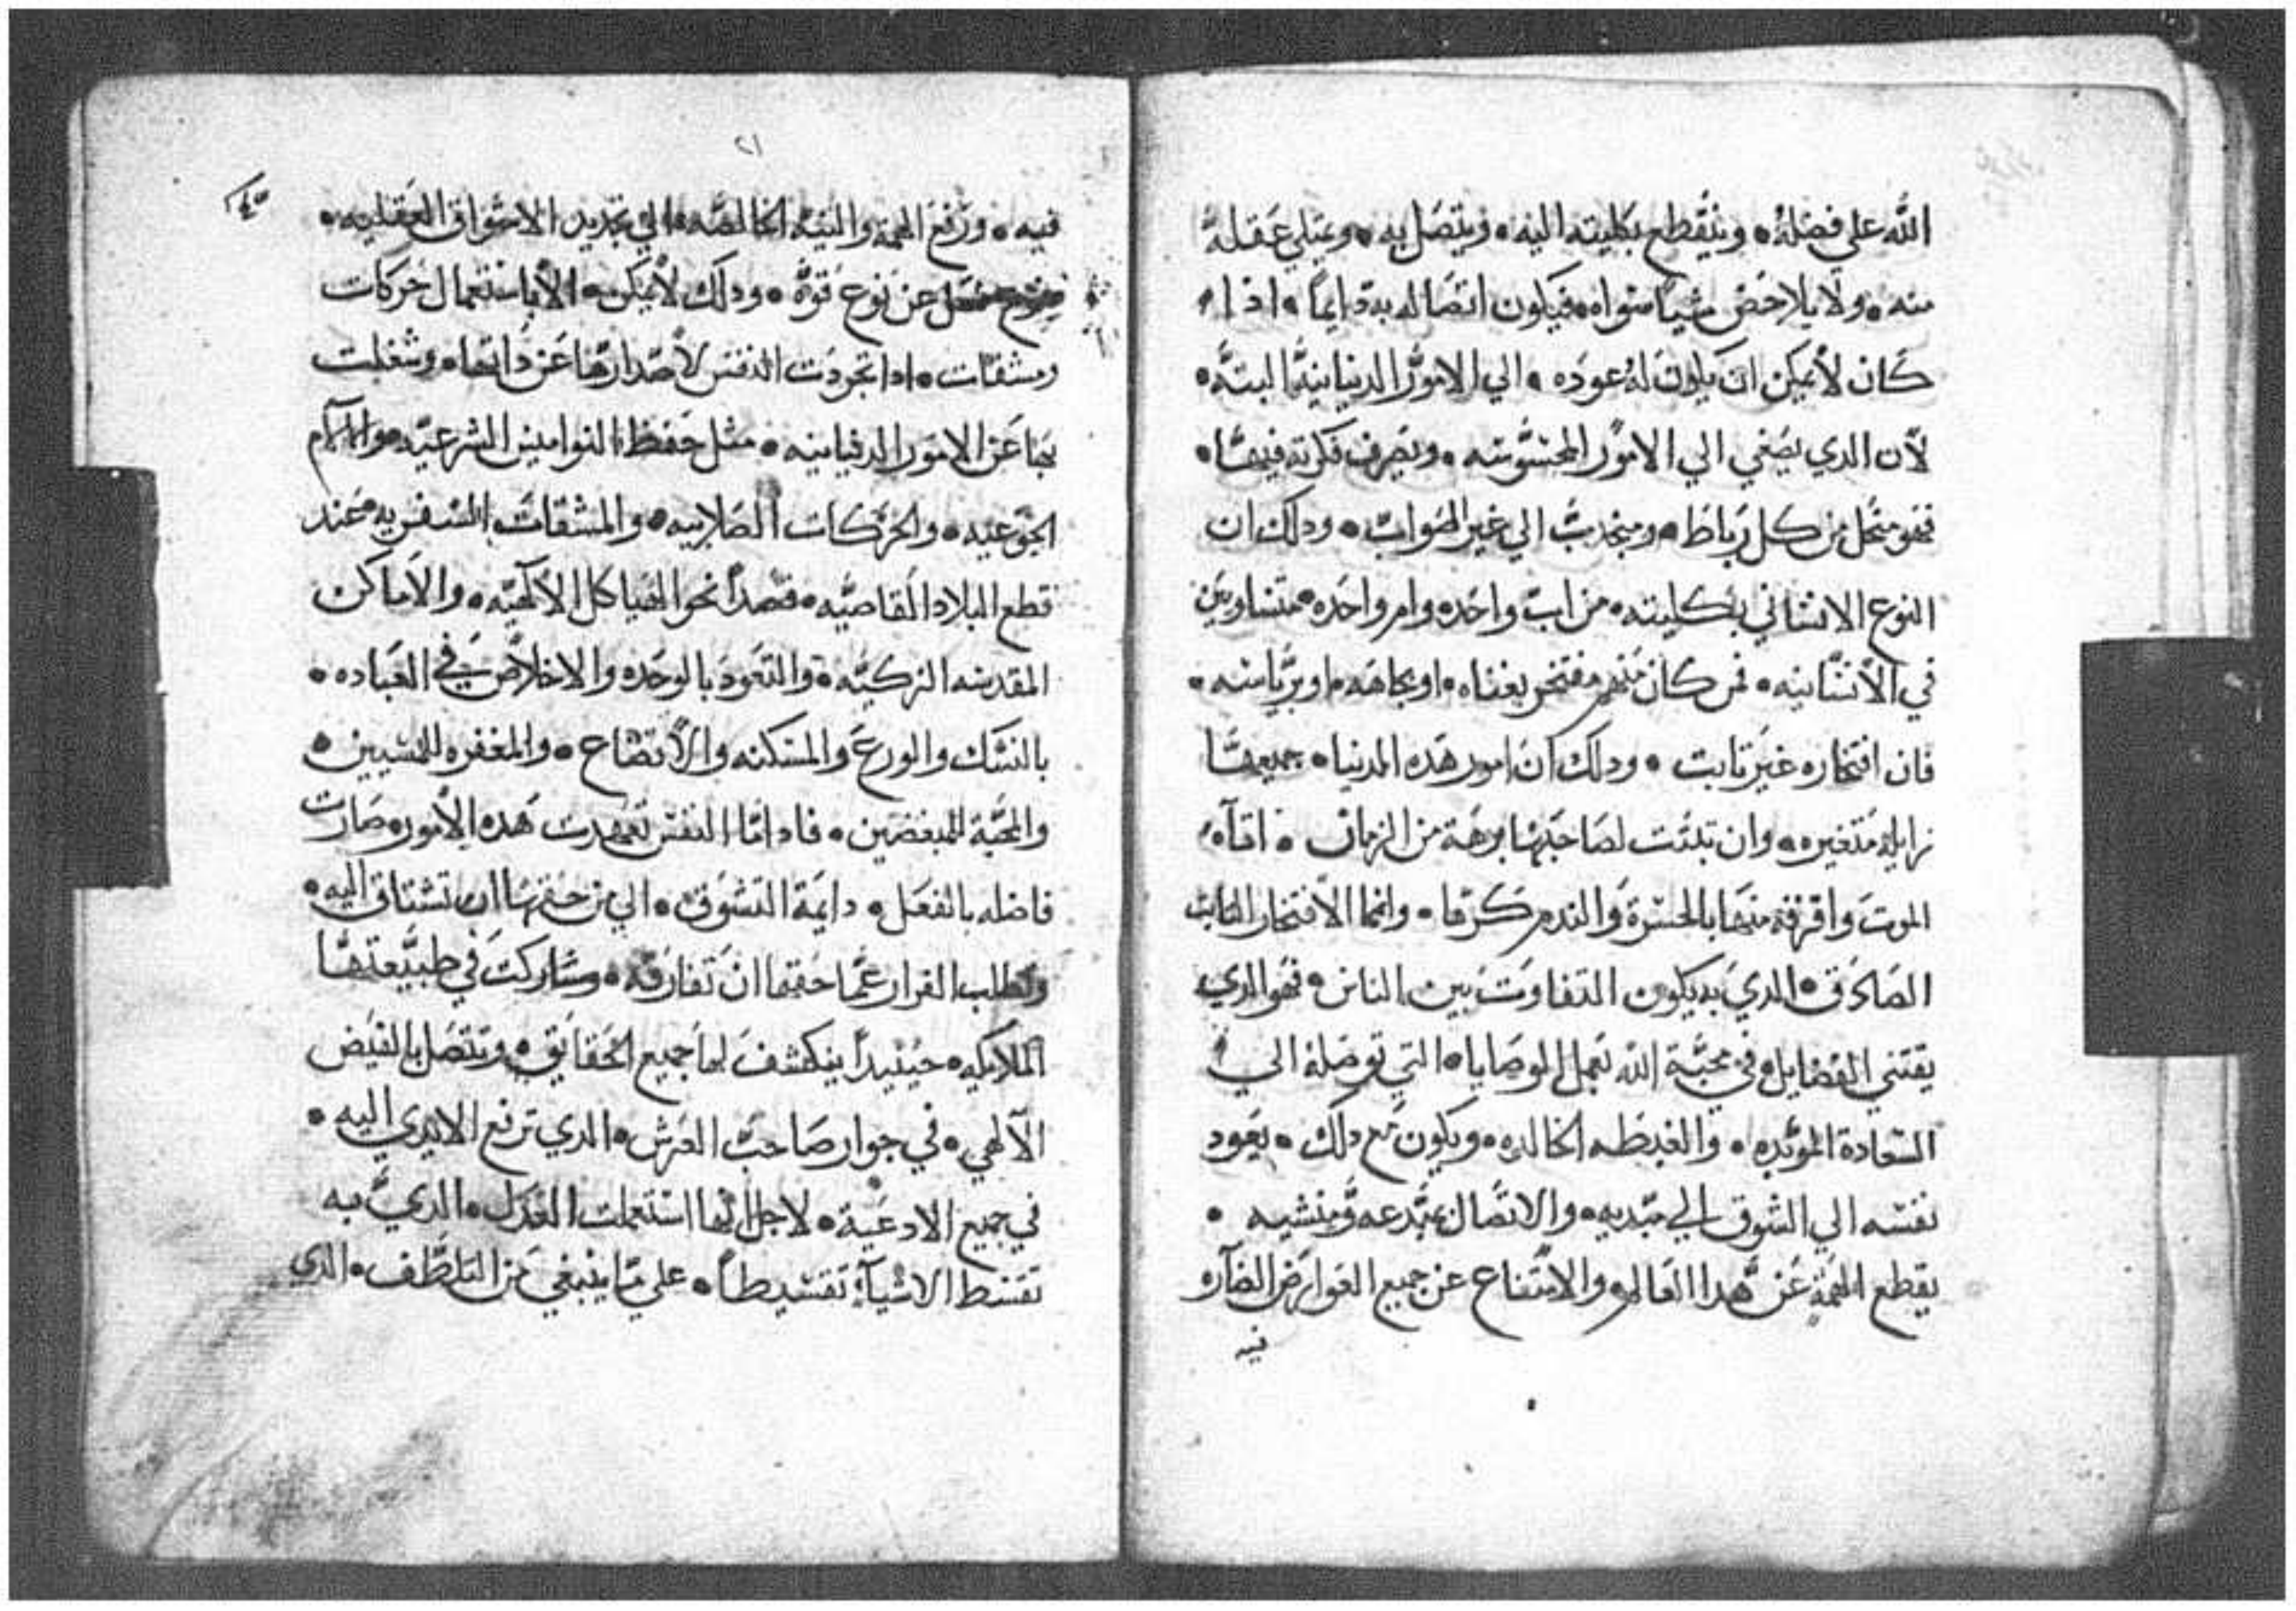 الله علي فضله • وينقطع بكليته اليه • ويتصل به • ويمتلي عقله
منه • ولا يلاحض شيا سواه • فيكون اتصاله به دايماً • اذا
كان لا يمكن ان يكون له عوده • الي الامور الدنيانية البته •
لان الدي يصغي الي الامور المحسوسه • ويصرف فكرته فيها •
فهو منحل من كل رباط • ومنجدب الي غير الصواب • ودلك ان
النوع الانساني بكليته • من اب واحد وام واحده • متساويين
في الانسانيه • فمن كان منهم مفتخر بغناه • او بجاهه • او برياسته •
فان افتخاره غير تابت • ودلك ان امور هده الدنيا • جميعها
زايله متغيره • وان تبتت لصاحبها برهة من الزمان • اتاه
الموت وافرقه منها بالحسرة والندم كرها • وانما الافتخار التابت
الصادق • الدي به يكون التفاوت بين الناس • فهو الدي
يقتني الفضايل • في محبة الله بعمل الوصايا • التي توصله الي
السعادة المؤبده • والغبطه الخالده • ويكون مع دلك • يعود
نفسه الي الشوق الي مبديه • والاتصال بمبدعه ومنشيه •
يقطع الهمة عن هدا العالم • والامتناع عن جميع العوارض الضآره
فيه
٢١
٤٥
فيه • ورفع الهمة والنية الخالصه • الي تجديد الاشواق العقليه •
عن نوع قوة • ودلك لا يمكن • الا باستعمال حركات
ومشقات • ادا تجردت النفس لاصدارها عن داتها • وشغلت
بها عن الامور الدنيانيه • مثل حفظ النواميس الشرعيه • والالآم
الجوعيه • والحركات الصلابيه • والمشقات السفريه • عند
قطع البلاد القاصيه • قصداً نحو الهياكل الالهيه • والاماكن
المقدسه الزكيه • والتعود بالوحده والاخلاص في العباده •
بالنسك والورع والمسكنه والاتضاع • والمغفره للمسيين •
والمحبة للمبغضين • فادا ما النفس تعهدت هده الامور • صارت
فاضله بالفعل • دايمة التشوق • الي من حقها ان تشتاق اليه •
وتطلب الفرار عما حقها ان تفارقه • وشاركت في طبيعتها
الملايكه • حينيداً ينكشف لها جميع الحقايق • وتتصل بالفيض
الآلهي • في جوار صاحب العرش • الدي ترفع الايدي اليه •
في جميع الادعية • لاجل انها استعملت العدل • الدي به
تقسط الاشيآء تقسيطاً • علي ما ينبغي من التلطف • الدي